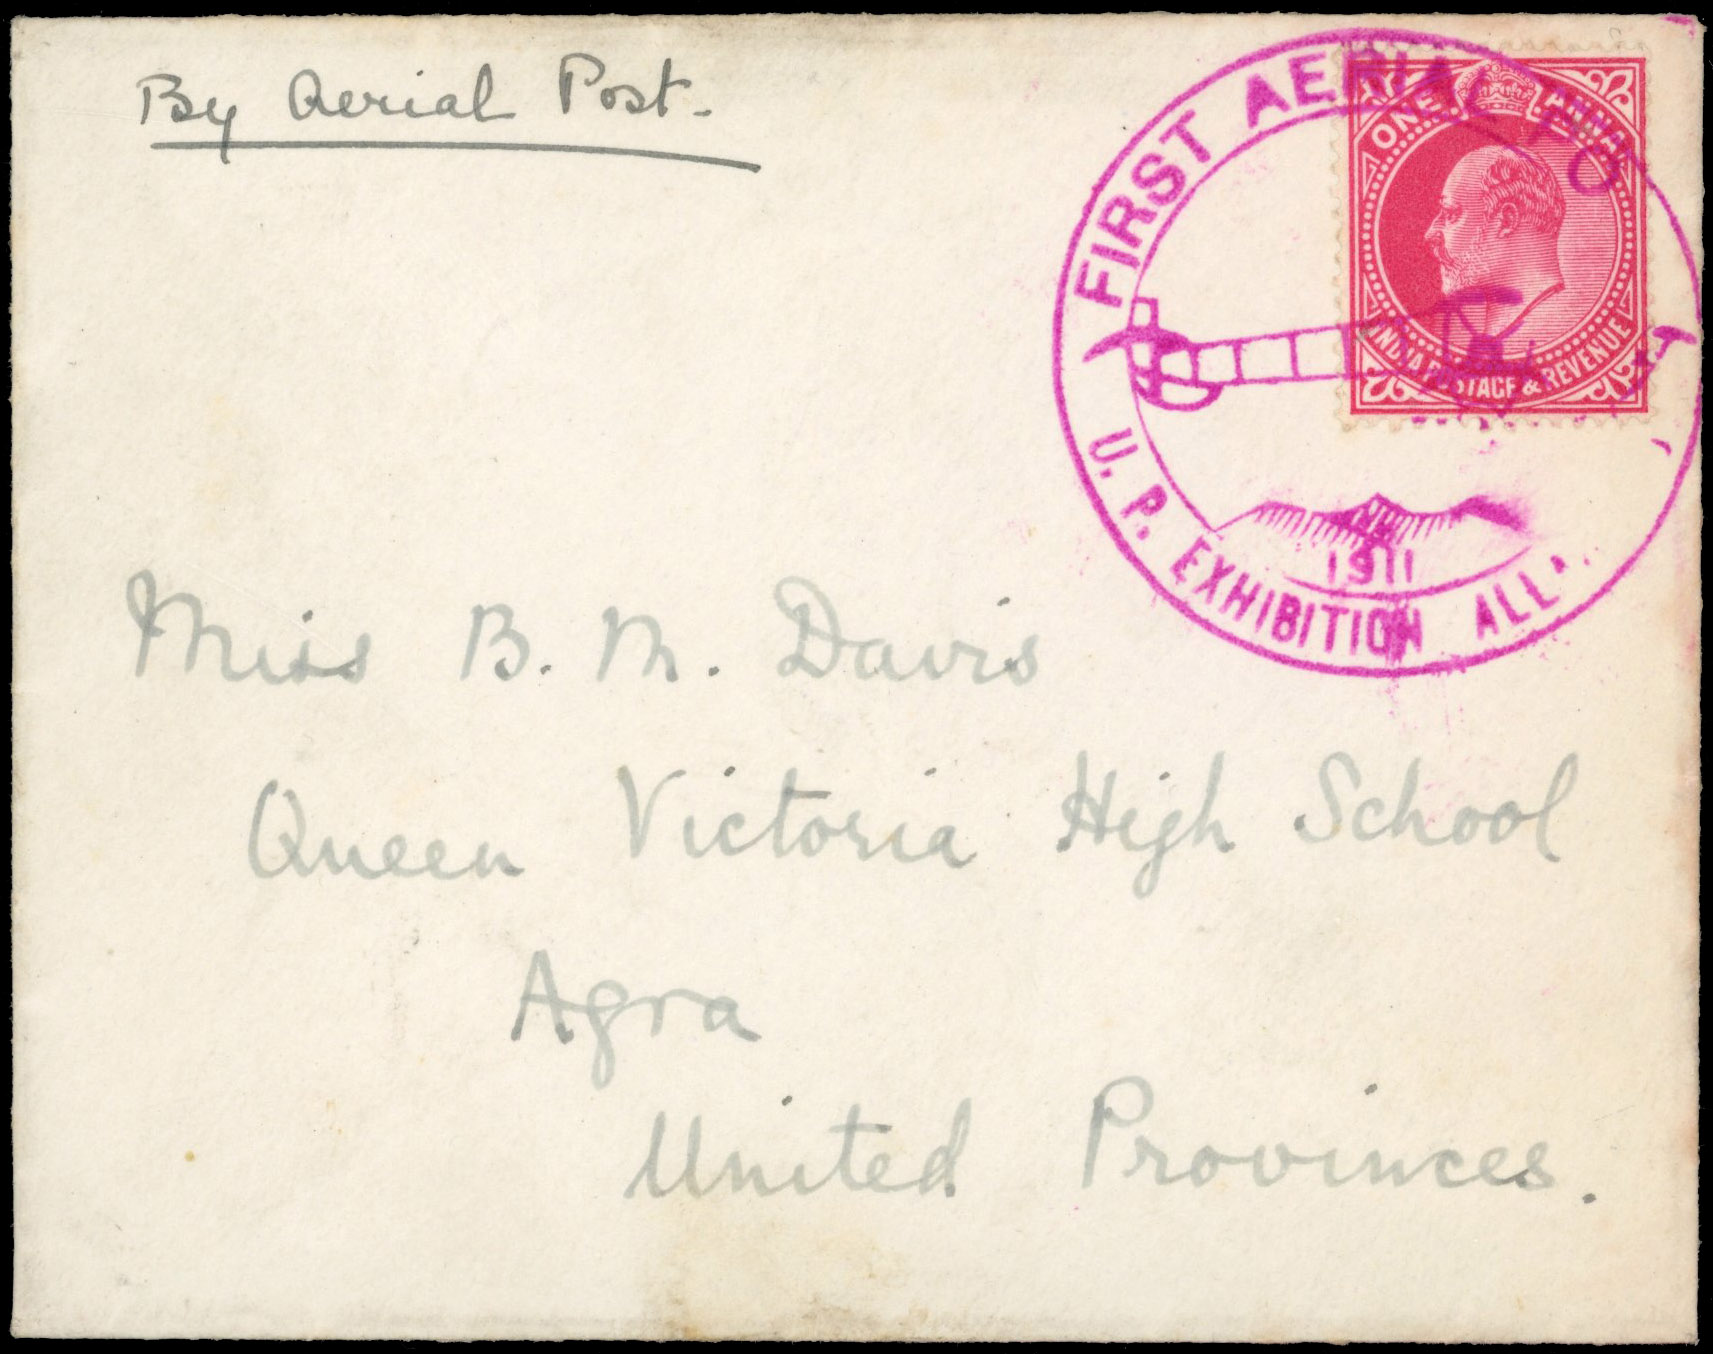 By Aerial Post.
FIRST AERIAL PO
ONE ANNA
INDIA POSTAGE & REVENUE
1911
U. P. EXHIBITION ALL
Miss B. M. Davis
Queen Victoria High School
Agra
United Provinces.